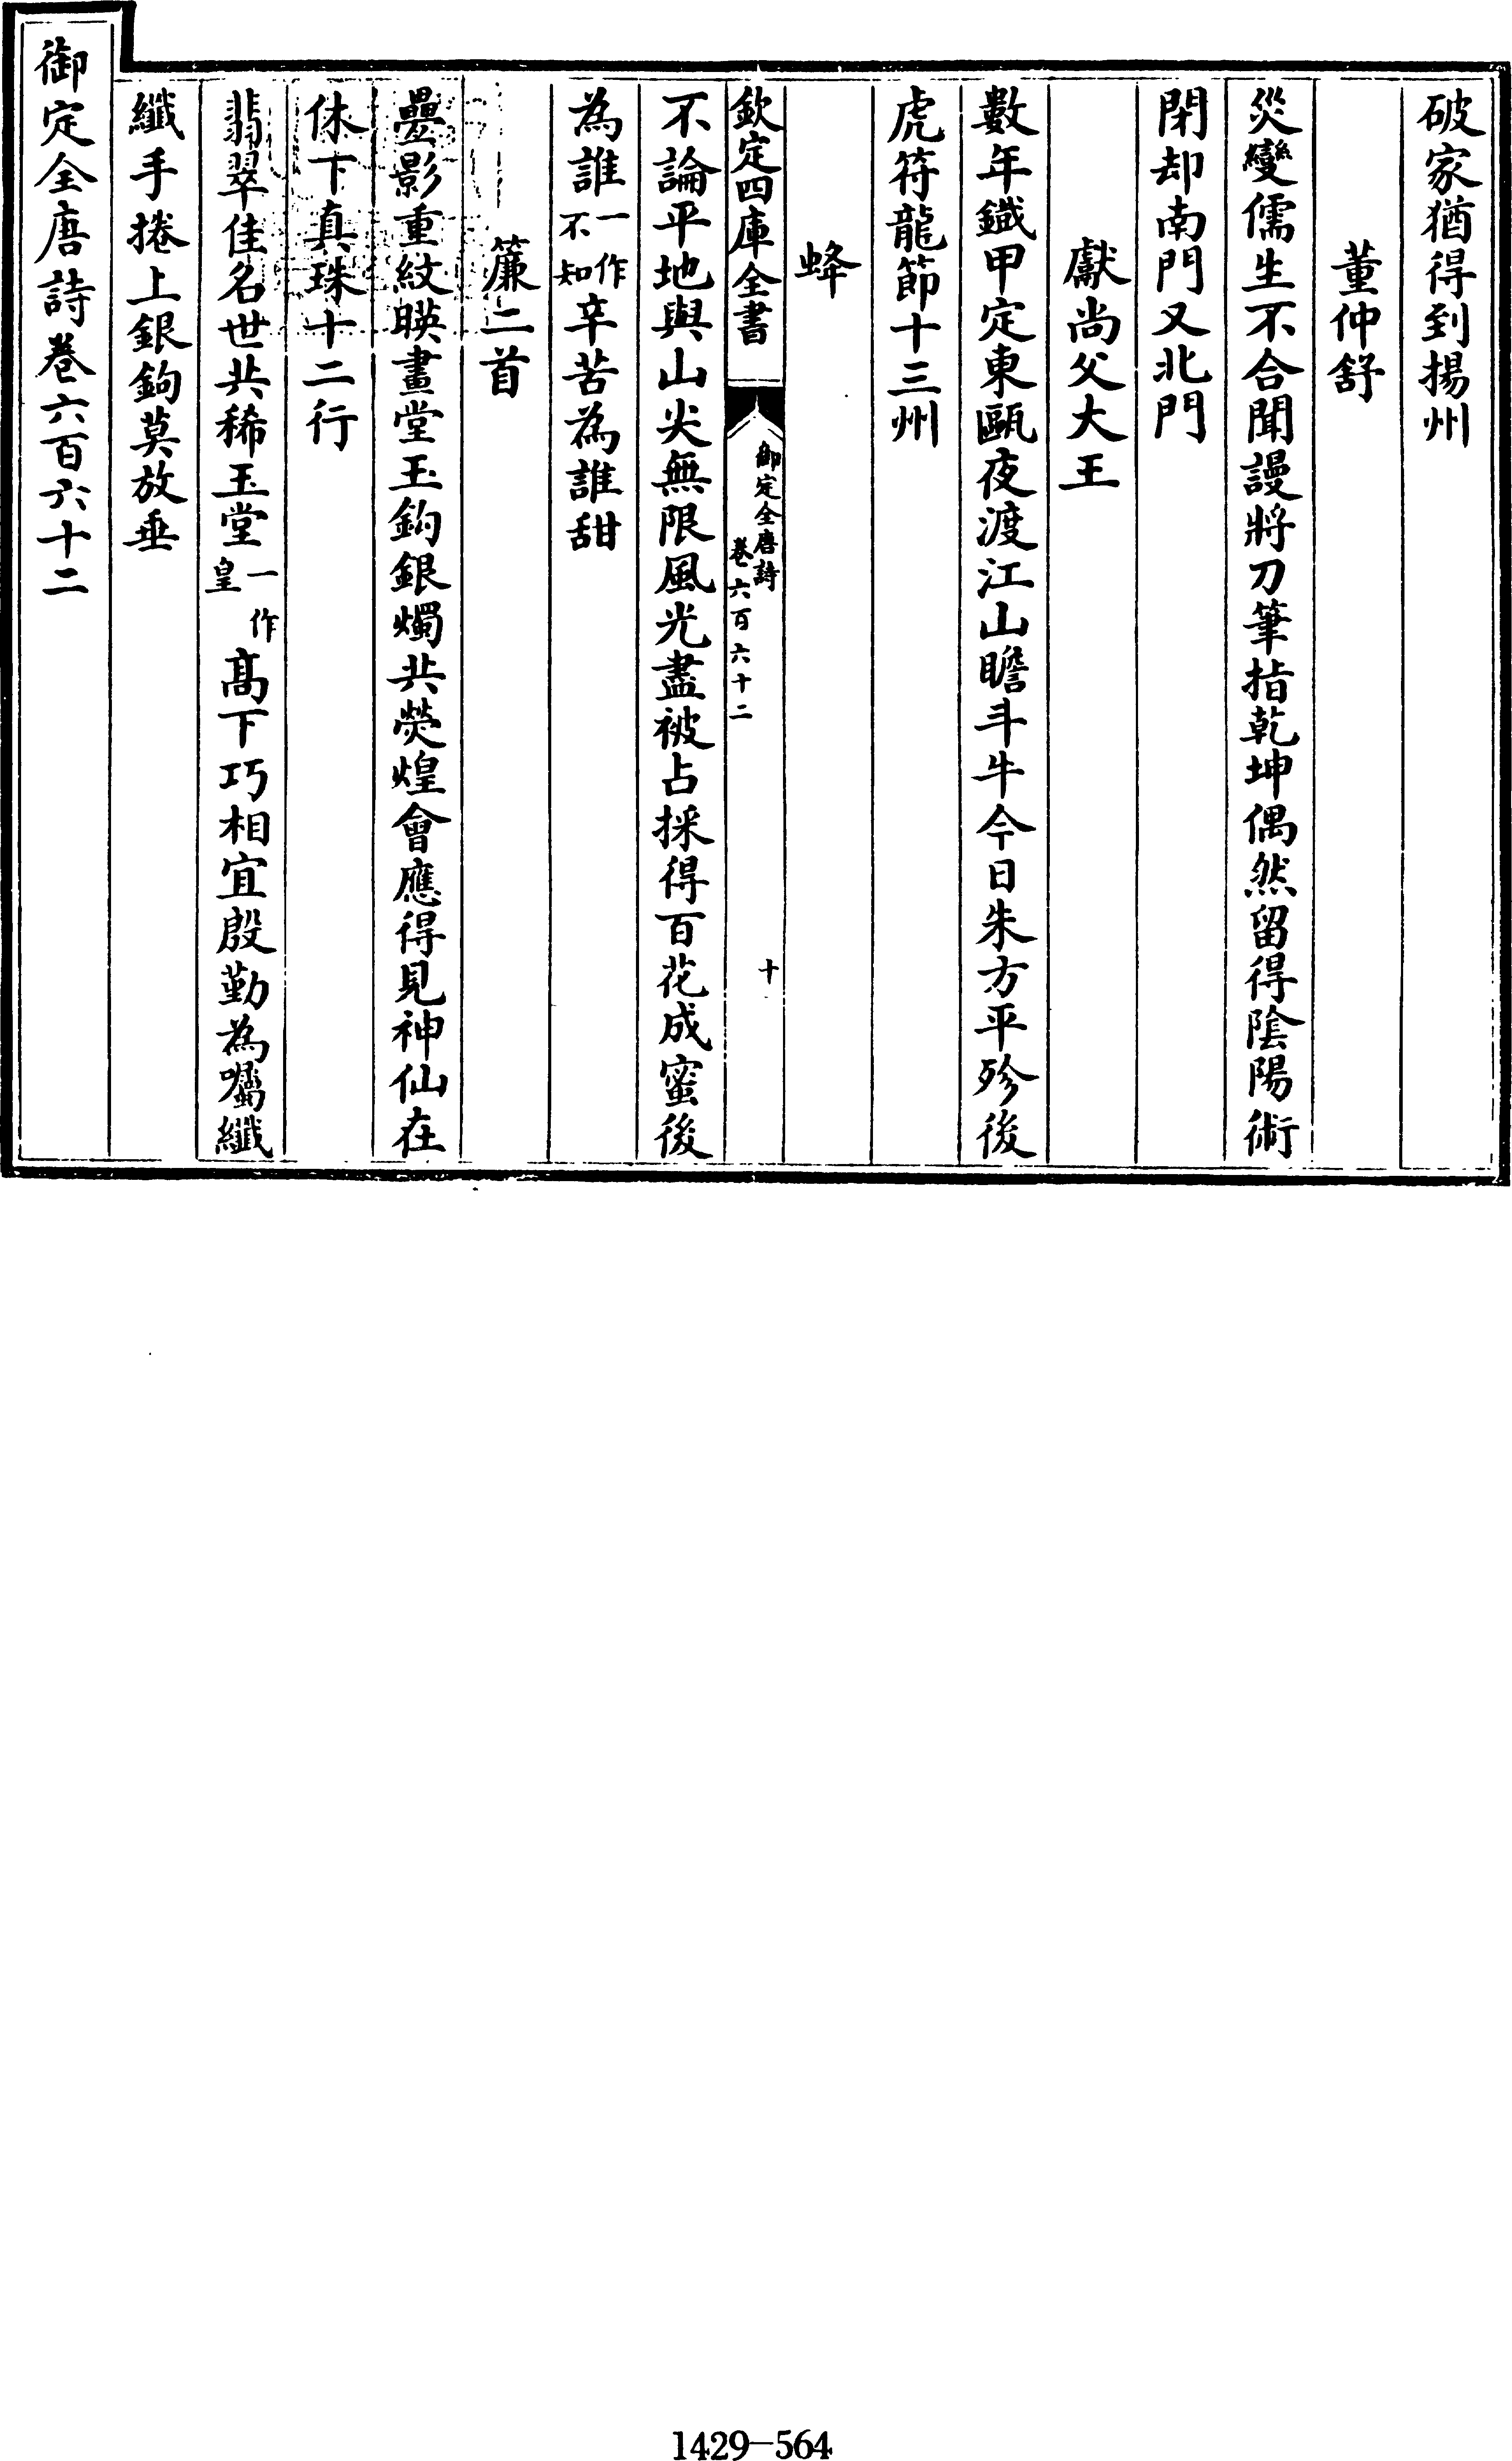 破家猶得到揚州
董仲舒
災變儒生不合聞謾將刀筆指乾坤偶然留得陰陽術
閉却南門又北門
獻尚父大王
數年鐵甲定東甌夜渡江山瞻斗牛今日朱方平殄後
虎符龍節十三州
蜂
欽定四庫全書
御定全唐詩
卷六百六十二
十
不論平地與山尖無限風光盡被占採得百花成蜜後
為誰一作不知辛苦為誰甜
簾二首
疊影重紋暎畫堂玉鈎銀燭共熒煌會應得見神仙在
休下真珠十二行
翡翠佳名世共稀玉堂一作皇高下巧相宜殷勤為囑纖
纖手捲上銀鉤莫放垂
御定全唐詩卷六百六十二
1429-564